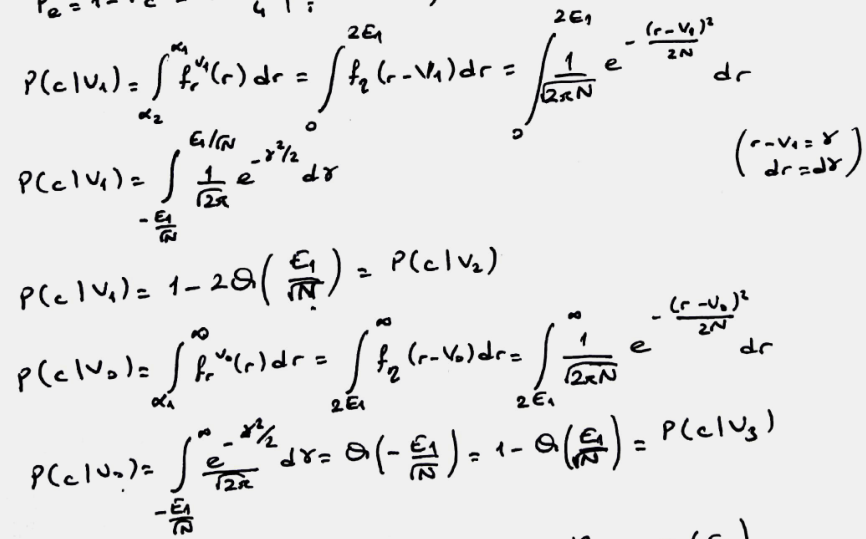 Pe = 1 - Pc = 1/4 [ :
P(c|V₁) = ∫_{α₂}^{α₁} f_r^{V₁}(r) dr = ∫_0^{2E₁} f_η(r-V₁) dr = ∫_0^{2E₁} 1/√(2πN) e^{-(r-V₁)²/2N} dr
(r-V₁ = γ
dr = dγ)
P(c|V₁) = ∫_{-E₁/√N}^{E₁/√N} 1/√(2π) e^{-γ²/2} dγ
P(c|V₁) = 1 - 2Q(E₁/√N) = P(c|V₂)
P(c|V₀) = ∫_{α₁}^∞ f_r^{V₀}(r) dr = ∫_{2E₁}^∞ f_η(r-V₀) dr = ∫_{2E₁}^∞ 1/√(2πN) e^{-(r-V₀)²/2N} dr
P(c|V₀) = ∫_{-E₁/√N}^∞ e^{-γ²/2}/√(2π) dγ = Q(-E₁/√N) = 1 - Q(E₁/√N) = P(c|V₃)